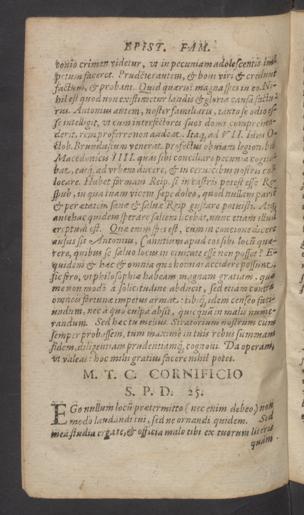 EPIST. FAM.
tonio crimen videtur, vt in pecuniam adolescentis im-
petum faceret. Prudētes autem, & boni viri & credunt
factum, & probant. Quid quæris? magna spes in eo. Ni-
hil est quod non existimetur laudis & gloriæ causa factu-
rus. Antonius autem, noster familiaris, tanto se odio es-
se intelligit, vt cum interfectores suos domi comprehen-
derit, rem proferre non audeat. Itaq; ad VII. idus O-
ctob. Brundusium venerat, profectus obuiam legion. bus
Macedonicis IIII. quas sibi conciliare pecunia cogita-
bat, easq; ad vrbem ducere, & in ceruicibus nostris col-
locare. Habes formam Reip. si in castris potest esse Res-
pub. in qua tuam vicem sæpe doleo, quod nullam partem
per ætatem sanæ & saluæ Reip. gustare potuisti. Atq;
antehac quidem sperare saltem licebat, nunc etiam illud
ereptum est. Quæ enim spes est, cum in concione dicere
ausus sit Antonius, Canutium apud eos sibi locū quære-
re, quibus se saluo locus in ciuitate esse non posset? E-
quidem & hæc & omnia quæ homini accidere possunt,
sic fero, vt philosophiæ habeam magnam gratiam, quæ
me non modò à solicitudine abducit, sed etiam contra
omneis fortunæ impetus armat: tibiq; idem censeo faci-
undum, nec à quo culpa absit, quicquā in malis nume-
randum. Sed hæc tu melius. Stratorium nostrum cùm
semper probassem, tum maxime in tuis rebus summam
fidem, diligentiam prudentiamq; cognoui. Da operam,
vt valeas: hoc mihi gratius facere nihil potes.
M. T. C. CORNIFICIO
S. P. D. 25.
EGo nullum locū prætermitto (nec enim debeo) non
modo laudandi tui, sed ne ornandi quidem. Sed
mea studia erga te, & officia malo tibi ex tuorum literis
quàm